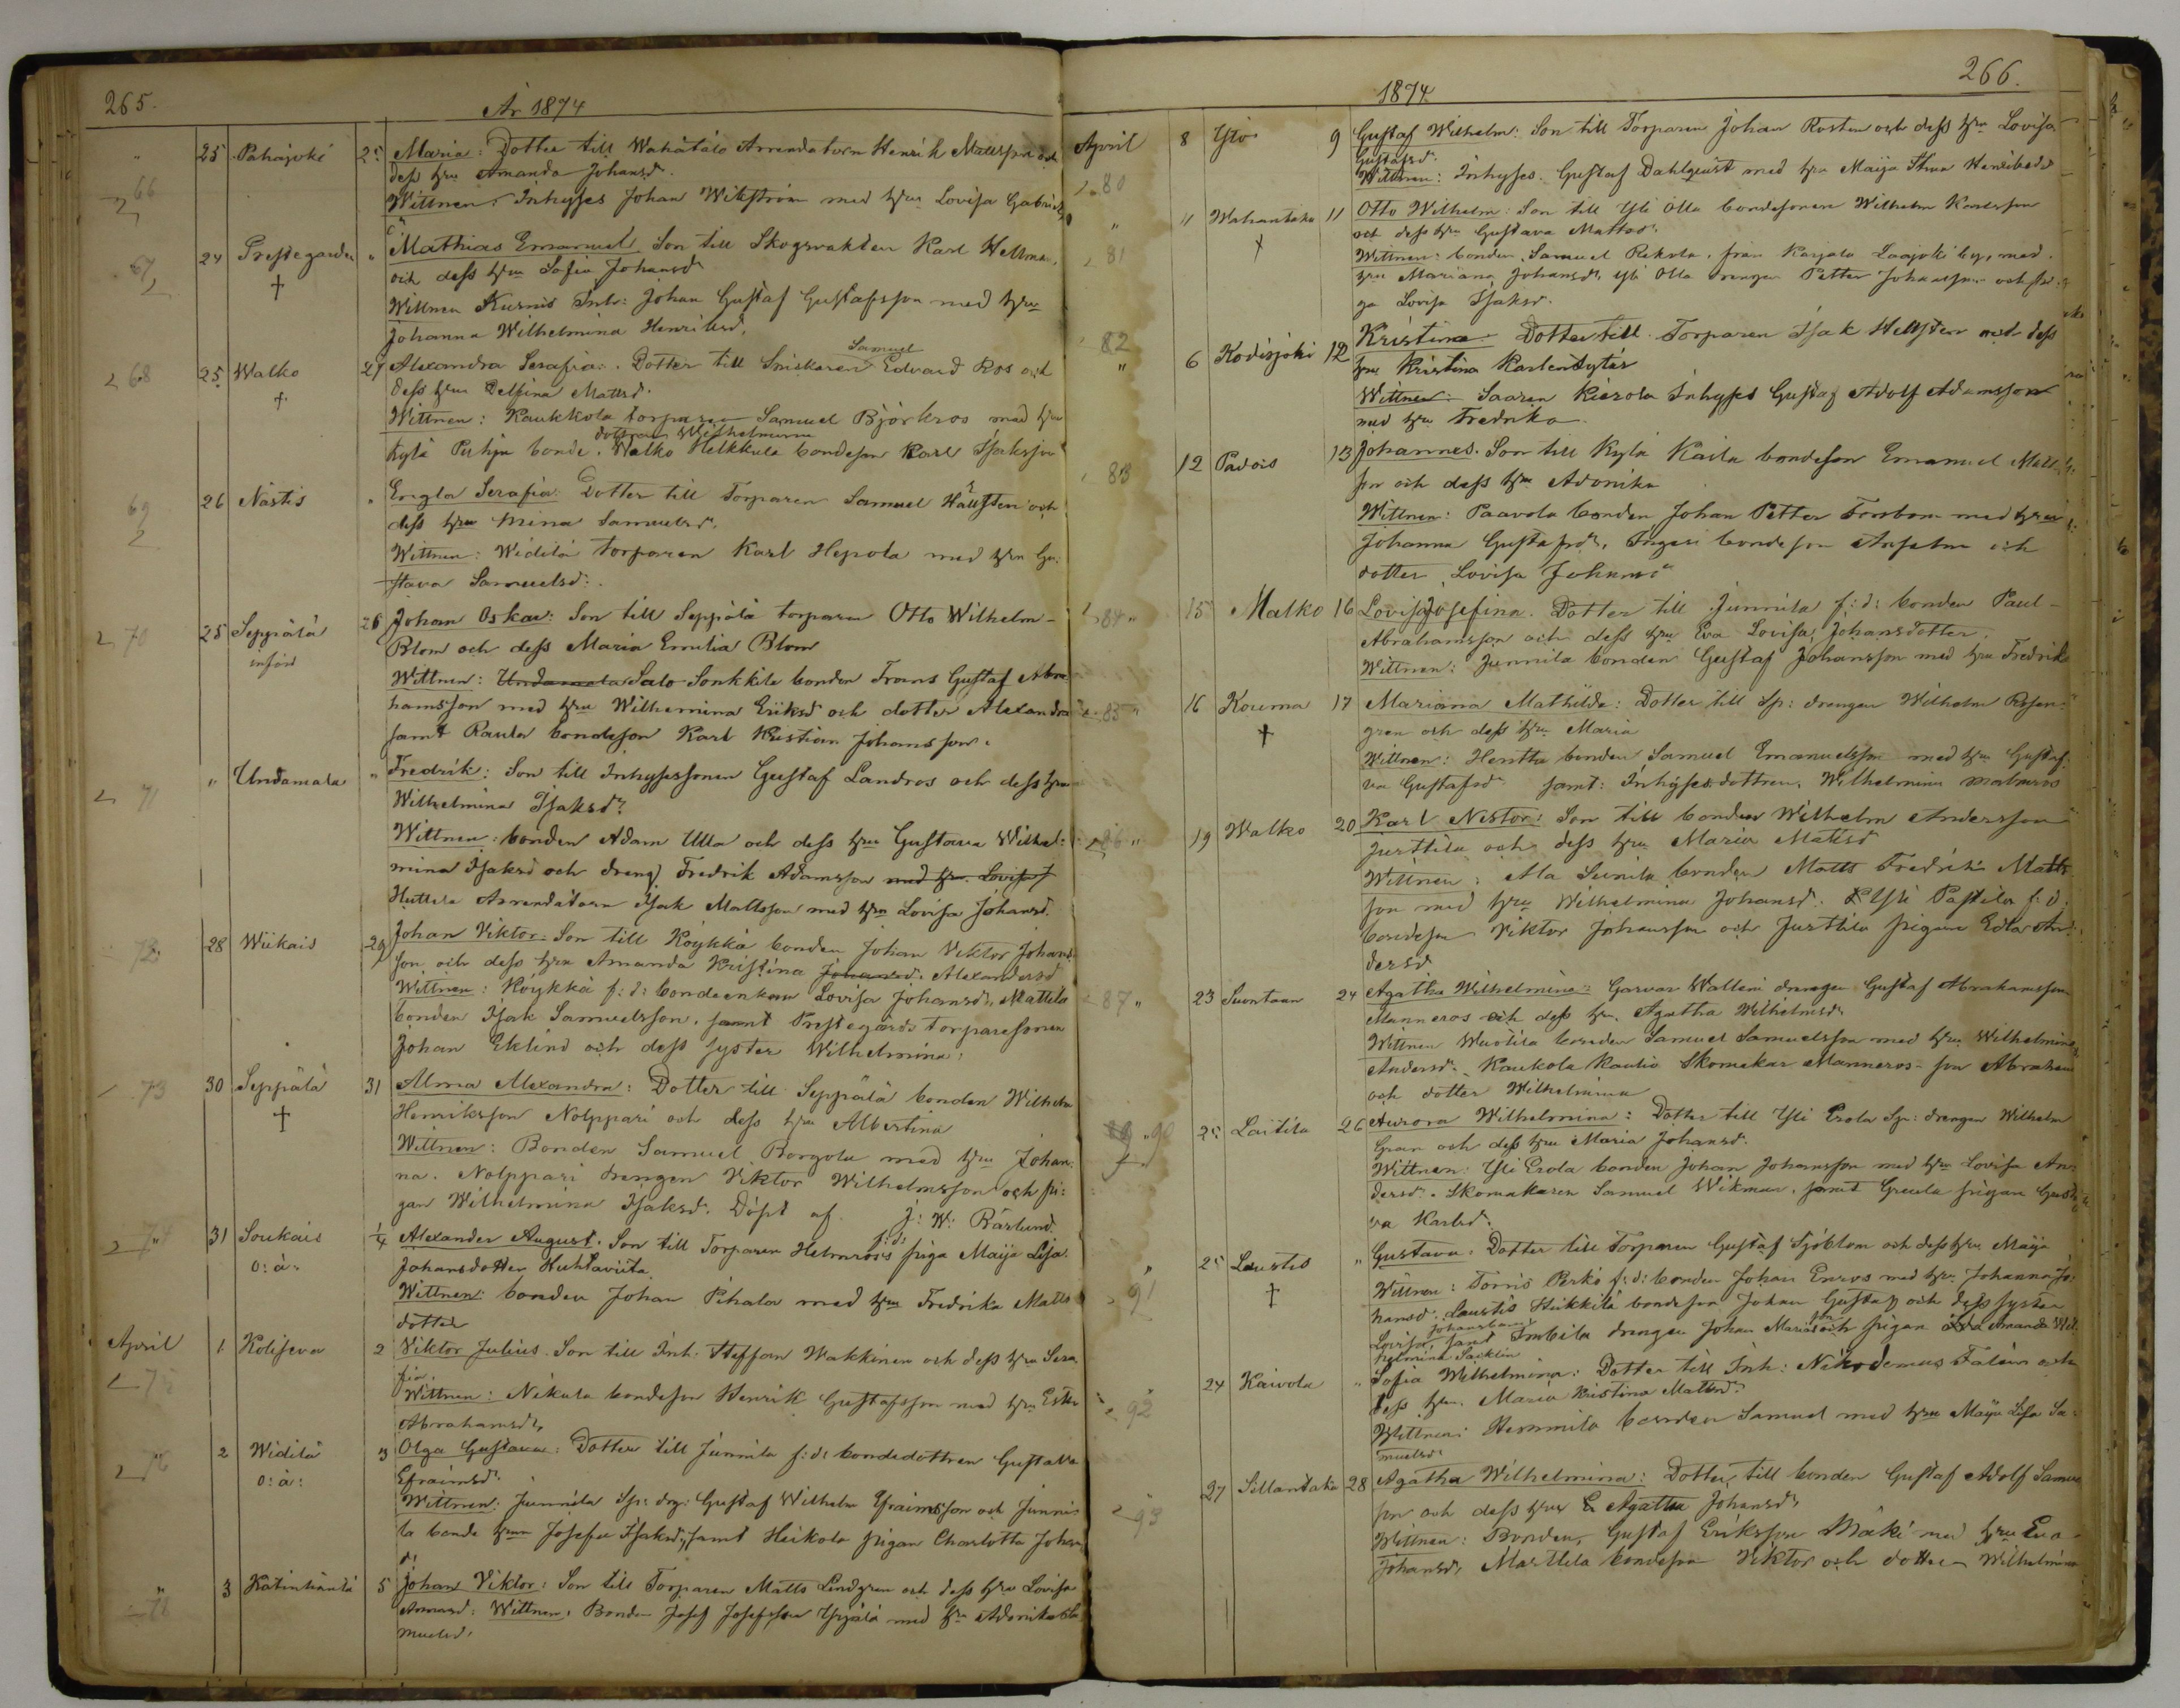 265.
År 1874
25 Pahajoki 25 Maria: Dotter till Wahätalo Arrendatorn Henrik Mattsson och
66 dess hru Amanda Johansd.
Wittnen: Inhyses Johan Wikström med hru Lovisa
67 24 Prestegården " Mathias Emanuel Son till Skogsvakten Karl Hellman,
† och dess hru Sofia Johansd
Wittnen Kurnis Inh: Johan Gustaf Gustafsson med hru
Johanna Wilhelmina Henriksd.
Samuel
68 25 Walko 27 Alexandra Serafia: Dotter till Snickaren Edvard Ros och
† dess hru Delfina Mattsd.
Wittnen: Kaukkola torparen Samuel Björkros med hru
dottren Wilhelmina
Kylä bonde. Walko Heikkila bondeson Karl Isaksson
69 26 Nästis " Engla Serafia: Dotter till Torparen Samuel Hallsten och
dess hru Mina Samuelsd.
Wittnen: Widilä torparen Karl Hepola med hru Gu-
stava Samuelsd:
70 25 Seppälä 26 Johan Oskar: Son till Seppälä torparen Otto Wilhelm
Blom och dess Maria Emilia Blom
Wittnen: Undamala Salo Sonkkila bonden Frans Gustaf Abra-
hamsson med hru Wilhemina Eriksd och dotter Alexandra
samt Raula bondeson Karl Kristian Johansson.
71 " Undamala " Fredrik: Son till Inhysessonen Gustaf Landros och dess hru
Wilhelmina Isaksdr
Wittnen: bonden Adam Ulla och dess hru Gustava Wilhel-
mina Isaksd och dreng Fredrik Adamsson med hru Lovisa J
Huttila Arrendatorn Isak Mattsson med hru Lovisa Johansd.
72 28 Wiikais 29 Johan Viktor: Son till Köykkä bonden Johan Viktor Johans-
son och dess hru Amanda Kristina Johansd. Alexandersd
Wittnen: Köykkä f: d: bondeenkan Lovisa Johansd, Mattila
bonden Isak Samuelsson, samt Prestegårds torparesonen
Johan Eklind och dess syster Wilhelmina:
73 30 Seppälä 31 Alma Alexandra: Dotter till Seppälä bonden Wilhelm
† Henriksson Nolppari och dess hru Albertina
Wittnen: Bonden Samuel Borgola med hru Johan-
na. Nolppari drengen Viktor Wilhelmsson och pi-
gan Wilhelmina Isaksd. Döpt af J: W: Bärlund.
74 31 Soukais 1/4 Alexander August. Son till Torparen Helmross f:d: piga Maija Lisa
o: ä: Johansdotter Huhtaviita
Wittnen: bonden Johan Pihala med hru Fredrika Matts-
dotter
April 1 Koliseva 2 Viktor Julius. Son till Inh. Steffan Wakkinen och dess hru Sera-
75 fia.
Wittnen: Nikula bondeson Henrik Gustafsson med hru Ester
Abrahamsd,
76 2 Widilä 3 Olga Gustava: Dotter till Junnila f: d: bondedottren Gustava
o: ä: Efraimsd.
Wittnen: Junnila Sp: drg: Gustaf Wilhelm Efraimsson och Junni-
la bonde hrun Josefa Isaksd, samt Heikola pigan Charlotta Johans
d.
78 3 Katinhäntä 5 Johan Viktor: Son till Torparen Matts Lindgren och dess hru Lovisa
Wittnen: Bonden Josef Josefsson Ypyälä med hru Adonika Sa-
muelsd.
266.
1874
April 8 Yliö 9 Gustaf Wilhelm: Son till Torparen Johan Rosten och dess hru Lovisa
80 Gustafsd.
Wittnen: Inhyses. Gustaf Dahlqvist med hru Maija Stina Henriksdr
" 11 Wahantaka 11 Otto Wilhelm: Son till Yli Olla bondesonen Wilhelm Karlsson
81 † och dess hru Gustava Mattsd.
Wittnen: bonden, Samuel Rekola, från Karjala Laajoki by, med
hru Mariana Johansd, Yli Olla drengen Petter Johansson och pi-
ga Lovisa Isaksd.
82 6 Kodisjoki 12 Kristina Dotter till Torparen Isak Hellsten och dess
" hru Kristina Karlendytär
Wittnen: Saaren Kierola Inhyses Gustaf Adolf Adamsson
med hru Fredrika
83 12 Padois 13 Johannes. Son till Kylä Kaila bondeson Emanuel Matts-
son och dess hru Adonika
Wittnen: Paavola bonden Johan Petter Forsbom med hru
Johanna Gustafsd, bondeson Anselm och
dotter Lovisa Johansd
84 " 15 Malko 16 Lovisa Josefina. Dotter till Junnila f: d: bonden Paul
Abrahamsson och dess hru Eva Lovisa, Johansdotter.
Wittnen: Junnila bonden Gustaf Johansson med hru Fredrika
85 " 16 Kouma 17 Mariana Mathilda: Dotter till Sp: drengen Wilhelm Rosen-
† gren och dess hru Maria
Wittnen: Hentta bonden Samuel Emanuelsson med hru Gusta-
va Gustafsd samt: Inhyses dottren, Wilhelmina Malmros
86 " 19 Walko 20 Karl Nestor: Son till bonden Wilhelm Andersson
Jusstila och dess hru Maria Mattsd
Wittnen: Ala Seinila bonden Matts Fredrik Matts-
son med hru Wilhelmina Johansd. Yli Pastila f: d:
bondeson Viktor Johansson och Jusstila pigan Edla An-
dersd
87 " 23 Suontaan 24 Agatha Wilhelmina: Garvar Wallen drengen Gustaf Abrahamsson
Manneros och dess hru Agatha Wilhelmsd
Wittnen Wuotila bonden Samuel Samuelsson med hru Wilhelmina
Andersd. Kaukola Kautio Skomakar Manneros son Abraham
och dotter Wilhelmina
90 25 Laitila 26 Aurora Wilhelmina: Dotter till Yli Erola Sp: drengen Wilhelm
Gran och dess hru Maria Johansd.
Wittnen: Yli Erola bonden Johan Johansson med hru Lovisa An-
dersd. Skomakaren Samuel Wikman, samt Greula pigan Gusta-
va Karlsd.
" 25 Laustis " Gustava. Dotter till Torparen Gustaf Sjöblom och dess hru Maija
91 † Wittnen: Torris Perko f: d: bonden Johan Enros med hru Johanna Jo-
hansd. Laustis Heikkilä bondeson Johan Gustaf och dess syster
Lovisa, samt Imbila drengen Johan Mariasson och pigan Amanda Wil-
helmina Sacklin
" 24 Kaivola " Sofia Wilhelmina: Dotter till Inh: Nikodemus Falén och
92 dess hru Maria Kristina Mattsd.
Wittnen: Hemmila bonden Samuel med hru Maija Lisa Sa-
muelsd.
" 27 Sillantaka 28 Agatha Wilhelmina: Dotter, till bonden Gustaf Adolf Samuel
93 son och dess hru Agatha Johansd,
Wittnen: Bonden, Gustaf Eriksson Mäki med hru Eva
Johansd, Marttila bondeson Viktor och dotter Wilhelmina